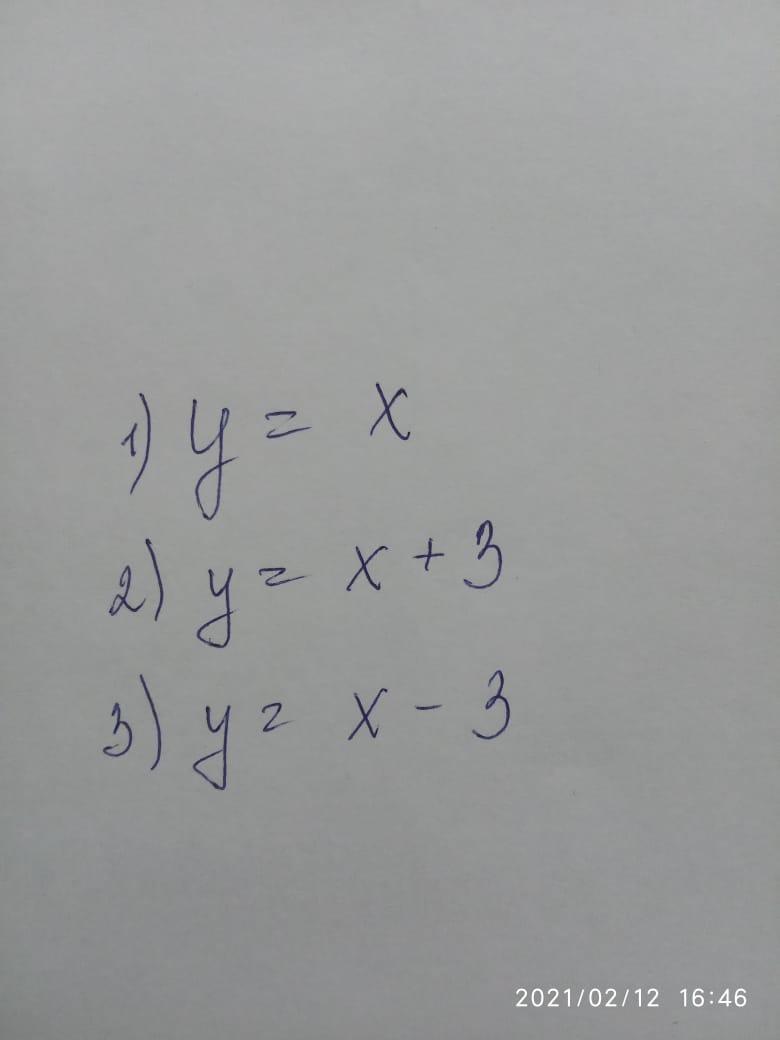 1) y = x
2) y = x + 3
3) y = x - 3
2021/02/12 16:46